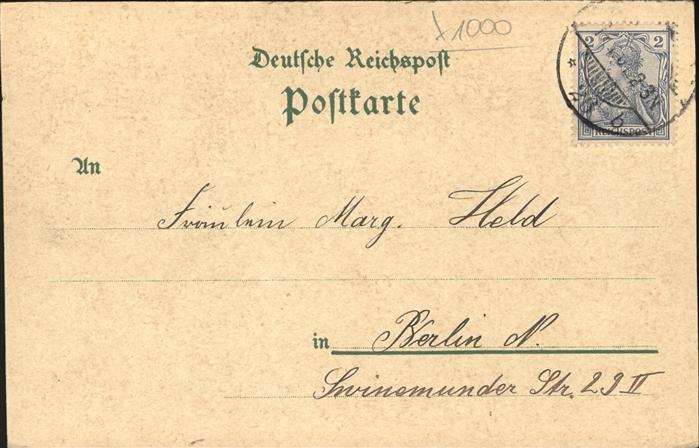 x 1000
Deutsche Reichspost
Postkarte
2 2
REICHSPOST
2-3N
b
An
Fräulein Marg. Held
in Berlin N.
Swinemunder Str. 29 II